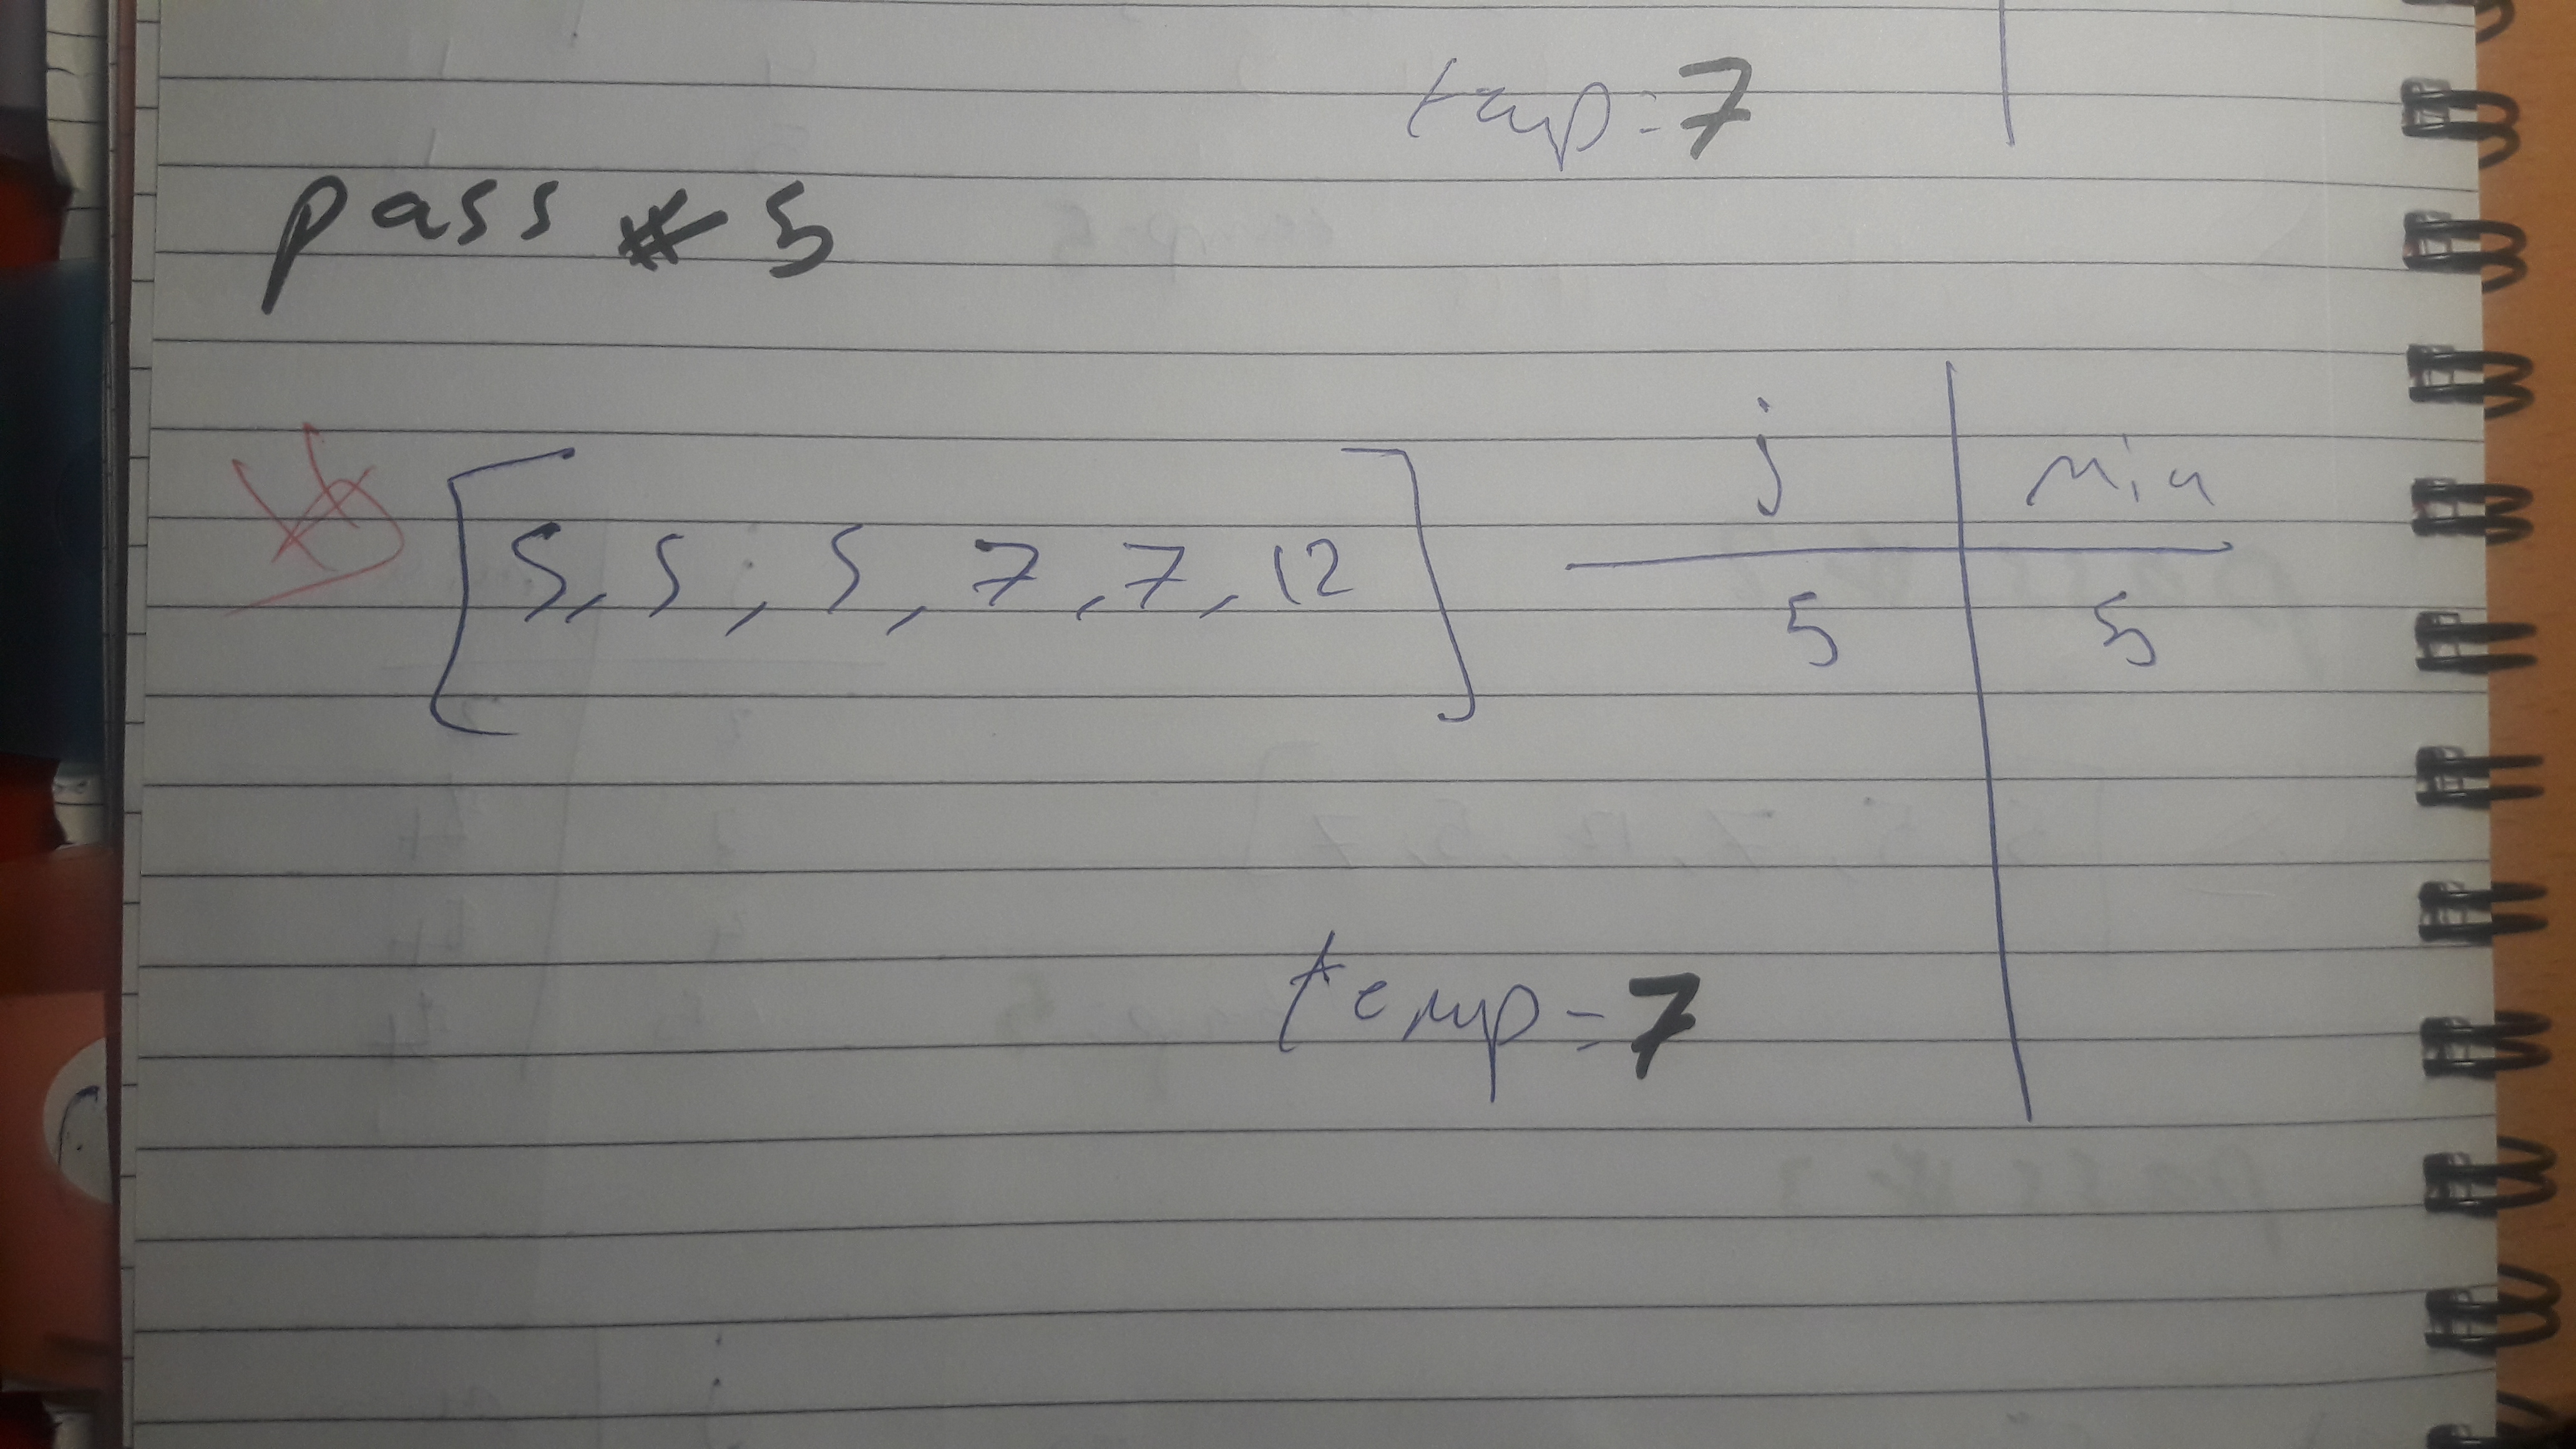 temp=7
pass # 5
[5, 5, 5, 7, 7, 12]
j min
5 5
temp=7